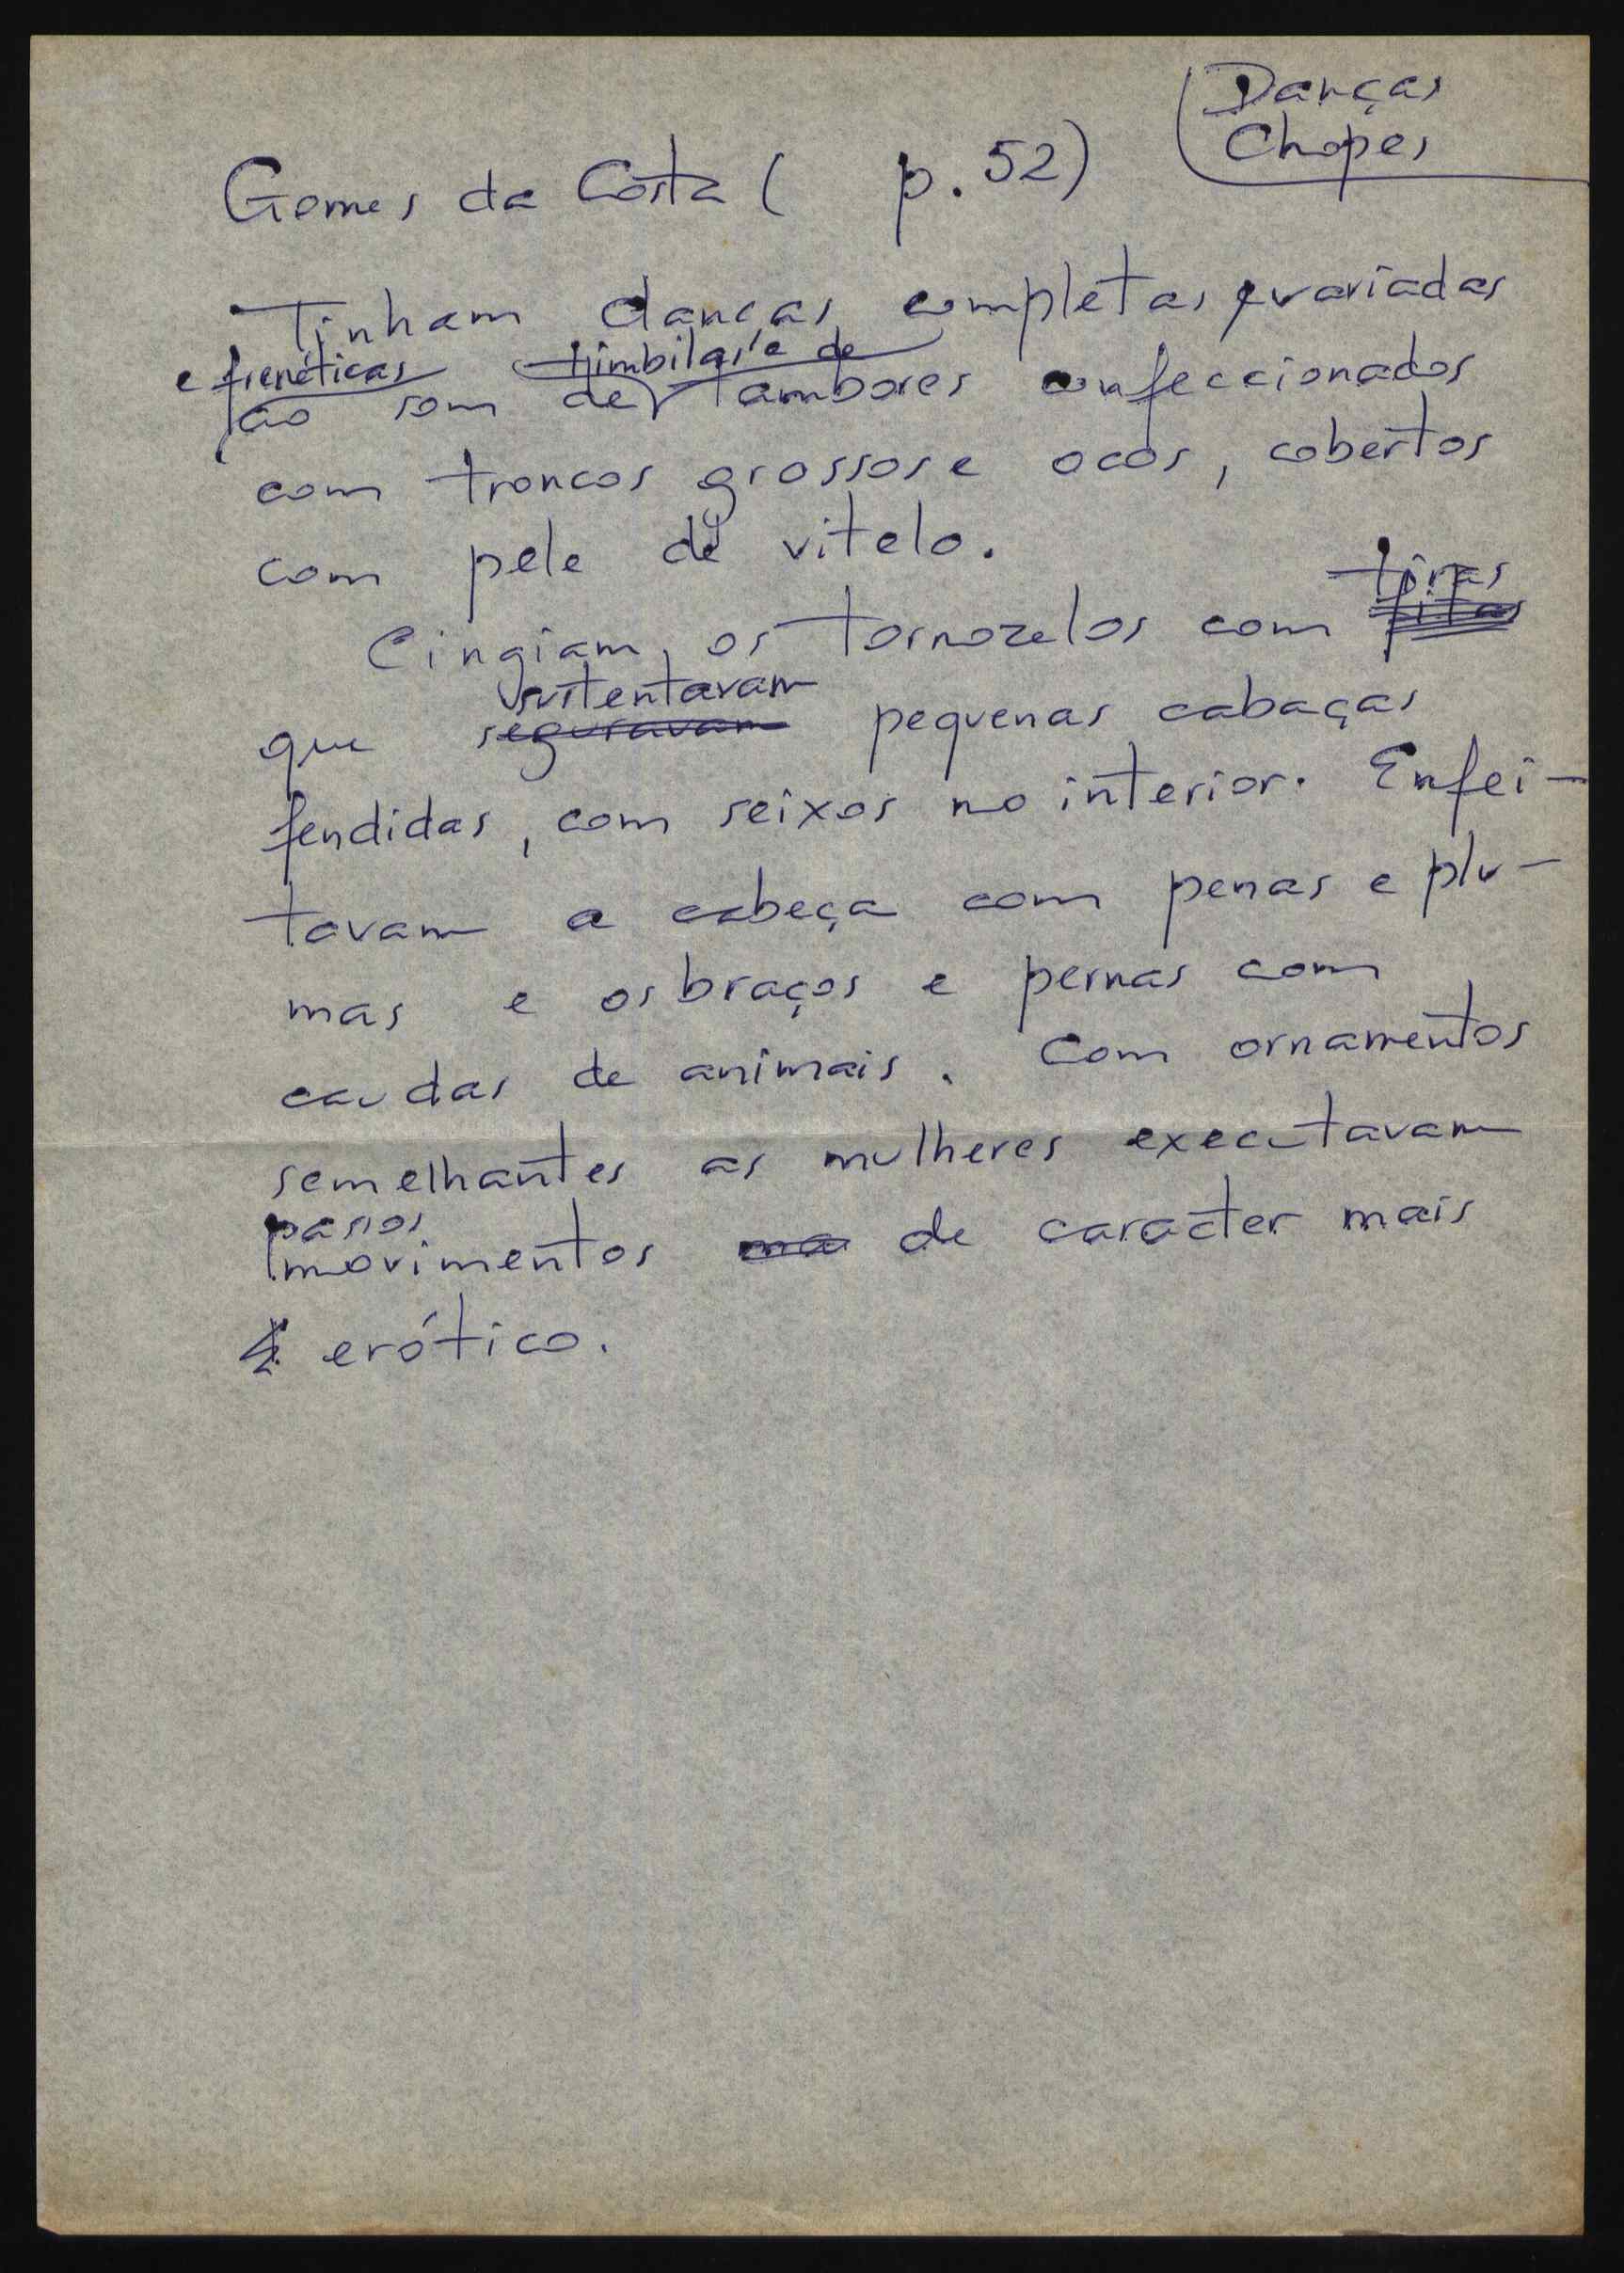 Danças
Chopes
Gomes da Costa ( p. 52)
Tinham danças completas, variadas
e frenéticas timbilas e de
ao som de tambores confeccionados
com troncos grossos e ocos, cobertos
com pele de vitelo.
tiras
Cingiam os tornozelos com fitas
sustentavam
que seguravam pequenas cabaças
fendidas, com seixos no interior. Enfei-
tavam a cabeça com penas e plu-
mas e os braços e pernas com
caudas de animais. Com ornamentos
semelhantes as mulheres executavam
passos
movimentos ma de caracter mais
erótico.